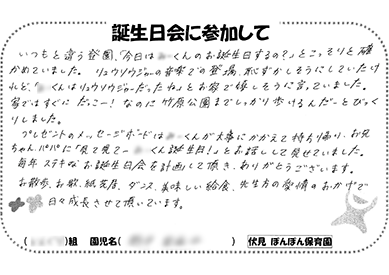 誕生日会に参加して
いつもと違う登園、「今日は くんのお誕生日するの?」とこっそりと確
かめていました。リュウソウジャーの音楽での登場、恥ずかしそうにしていたけ
れど、「 くんはリュウソウジャーだったね」とお家で嬉しそうに言っていました。
家ではすぐに だっこー! なのに竹原公園までしっかり歩けるんだーとびっく
りしました。
プレゼントのメッセージボードは くんが大事にかかえて持ち帰り、お兄
ちゃん、パパに「見て見てー くん誕生日!」とお話して見せていました。
毎年ステキなお誕生日会を計画して頂き、ありがとうございます。
お散歩、お歌、紙芝居、ダンス、美味しい給食、先生方の愛情のおかげで
日々成長させて頂いています。
( )組 園児名( ) 伏見 ぽんぽん保育園